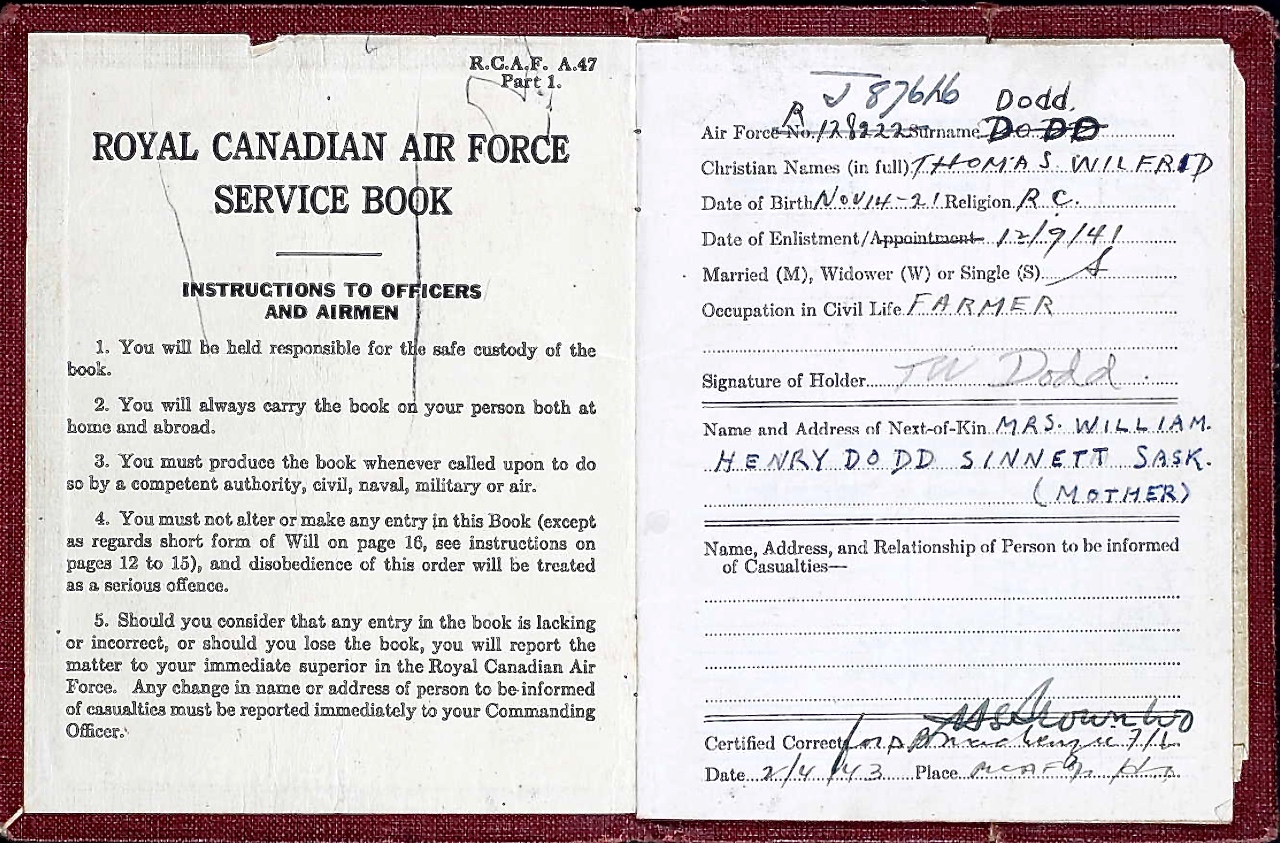 R.C.A.F. A.47
Part 1.
ROYAL CANADIAN AIR FORCE
SERVICE BOOK
INSTRUCTIONS TO OFFICERS
AND AIRMEN
1. You will be held responsible for the safe custody of the
book.
2. You will always carry the book on your person both at
home and abroad.
3. You must produce the book whenever called upon to do
so by a competent authority, civil, naval, military or air.
4. You must not alter or make any entry in this Book (except
as regards short form of Will on page 16, see instructions on
pages 12 to 15), and disobedience of this order will be treated
as a serious offence.
5. Should you consider that any entry in the book is lacking
or incorrect, or should you lose the book, you will report the
matter to your immediate superior in the Royal Canadian Air
Force. Any change in name or address of person to be informed
of casualties must be reported immediately to your Commanding
Officer.
J 87616 Dodd.
Air Force No. R 128922 Surname DODD
Christian Names (in full) THOMAS WILFRID
Date of Birth Nov 14-21 Religion R.C.
Date of Enlistment/Appointment 12/9/41
Married (M), Widower (W) or Single (S) S
Occupation in Civil Life FARMER
Signature of Holder TW Dodd
Name and Address of Next-of-Kin MRS. WILLIAM.
HENRY DODD SINNETT SASK.
(MOTHER)
Name, Address, and Relationship of Person to be informed
of Casualties—
Certified Correct for
Date 2/4/43 Place